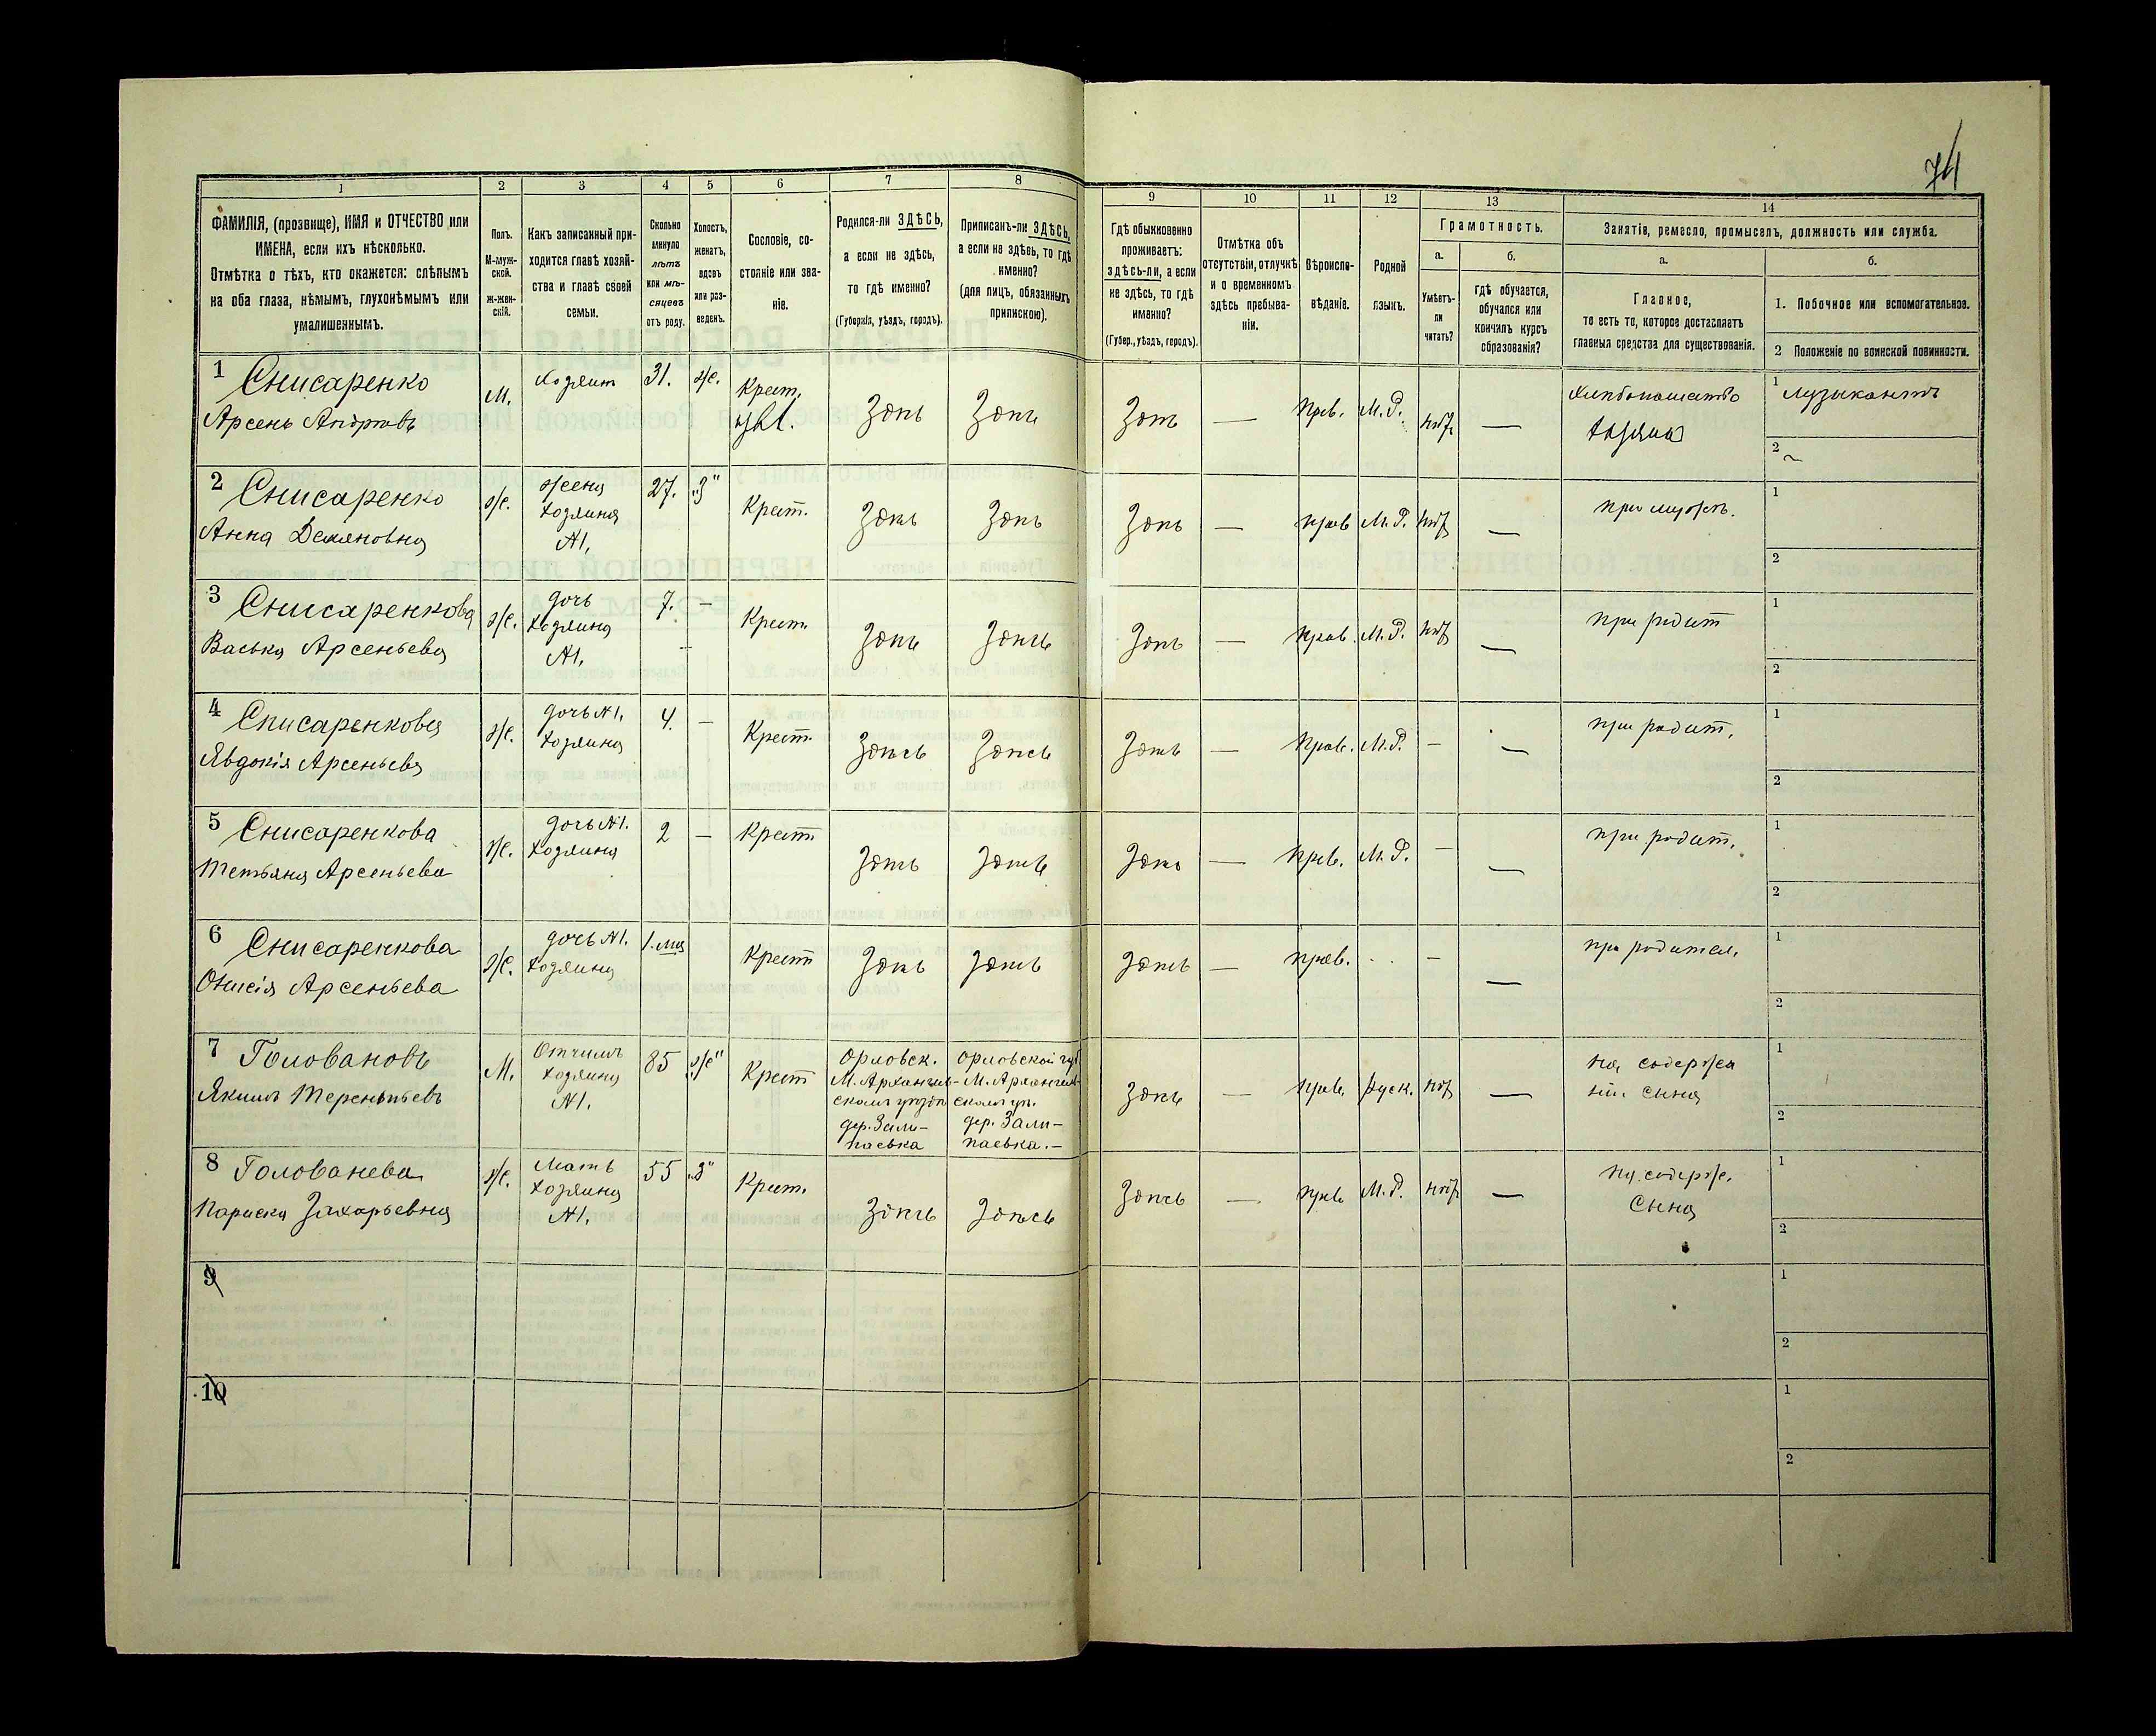 74
1
2
3
4
5
6
7
8
9
10
11
12
13
14
ФАМИЛІЯ, (прозвище), ИМЯ и ОТЧЕСТВО или
ИМЕНА, если ихъ нѣсколько.
Отмѣтка о тѣхъ, кто окажется: слѣпымъ
на оба глаза, нѣмымъ, глухонѣмымъ или
умалишеннымъ.
Полъ.
М-муж-
ской.
ж-жен-
скій.
Какъ записанный при-
ходится главѣ хозяй-
ства и главѣ своей
семьи.
Сколько
минуло
лѣтъ
или мѣ-
сяцевъ
отъ роду.
Холостъ,
женатъ,
вдовъ
или раз-
веденъ.
Сословіе, со-
стояніе или зва-
ніе.
Родился-ли ЗДѢСЬ,
а если не здѣсь,
то гдѣ именно?
(Губернія, уѣздъ, городъ).
Приписанъ-ли ЗДѢСЬ,
а если не здѣсь, то гдѣ
именно?
(для лицъ, обязанныхъ
припискою).
Гдѣ обыкновенно
проживаетъ:
здѣсь-ли, а если
не здѣсь, то гдѣ
именно?
(Губер., уѣздъ, городъ).
Отмѣтка объ
отсутствіи, отлучкѣ
и о временномъ
здѣсь пребыва-
ніи.
Вѣроиспо-
вѣданіе.
Родной
языкъ.
Грамотность.
а.
Умѣетъ-
ли
читать?
б.
Гдѣ обучается,
обучался или
кончилъ курсъ
образованія?
Занятіе, ремесло, промыселъ, должность или служба.
а.
Главное,
то есть то, которое доставляетъ
главныя средства для существованія.
б.
1. Побочное или вспомогательное.
2 Положеніе по воинской повинности.
1 Снисаренко
Арсень
М.
Хозяин
31.
ж.
Крест.
Здѣсь
Здѣсь
Здѣсь
—
Прав.
М. Р.
нѣт
—
Хлѣбопашество
хозяин
1 Музыкантъ
2
2 Снисаренко
Анна Демяновна
ж.
жена
хозяина
№1.
27.
"З"
Крест.
Здѣсь
Здѣсь
Здѣсь
—
прав
М. Р.
нѣт
—
при мужѣ.
1
2
3 Снисаренкова
Васька Арсеньева
ж.
дочь
хозяина
№1.
7.
—
Крест.
Здѣсь
Здѣсь
Здѣсь
—
Прав.
М. Р.
нѣт
—
при родит
1
2
4 Снисаренкова
Явдокія Арсеньева
ж.
дочь №1.
хозяина
4.
—
Крест.
Здѣсь
Здѣсь
Здѣсь
—
Прав.
М. Р.
—
—
при родит.
1
2
5 Снисаренкова
Тетьяна Арсеньева
ж.
дочь №1.
хозяина
2
—
Крест
Здѣсь
Здѣсь
Здѣсь
—
прав.
М. Р.
—
—
при родит.
1
2
6 Снисаренкова
Онисія Арсеньева
ж.
дочь №1.
хозяина
1. мѣс
Крест
Здѣсь
Здѣсь
Здѣсь
—
прав.
—
—
при родител.
1
2
7 Головановъ
Якимъ Терентьевъ
М.
Отчимъ
хозяина
№1.
85
"ж"
Крест
Орловск.
М. Архангел-
скомъ уѣздѣ
дер. Зали-
паевка
Орловской губ
М. Архангел-
скомъ уѣ.
дер. Зали-
паевка. —
Здѣсь
—
прав.
руск.
нѣт
—
на содержа
ніи сына
1
2
8 Голованева
Параска Захарьевна
ж.
Мать
хозяина
№1.
55
"З"
Крест.
Здѣсь
Здѣсь
Здѣсь
—
прав
М. Р.
нѣт
—
на содерж.
сына
1
2
9
1
2
10
1
2